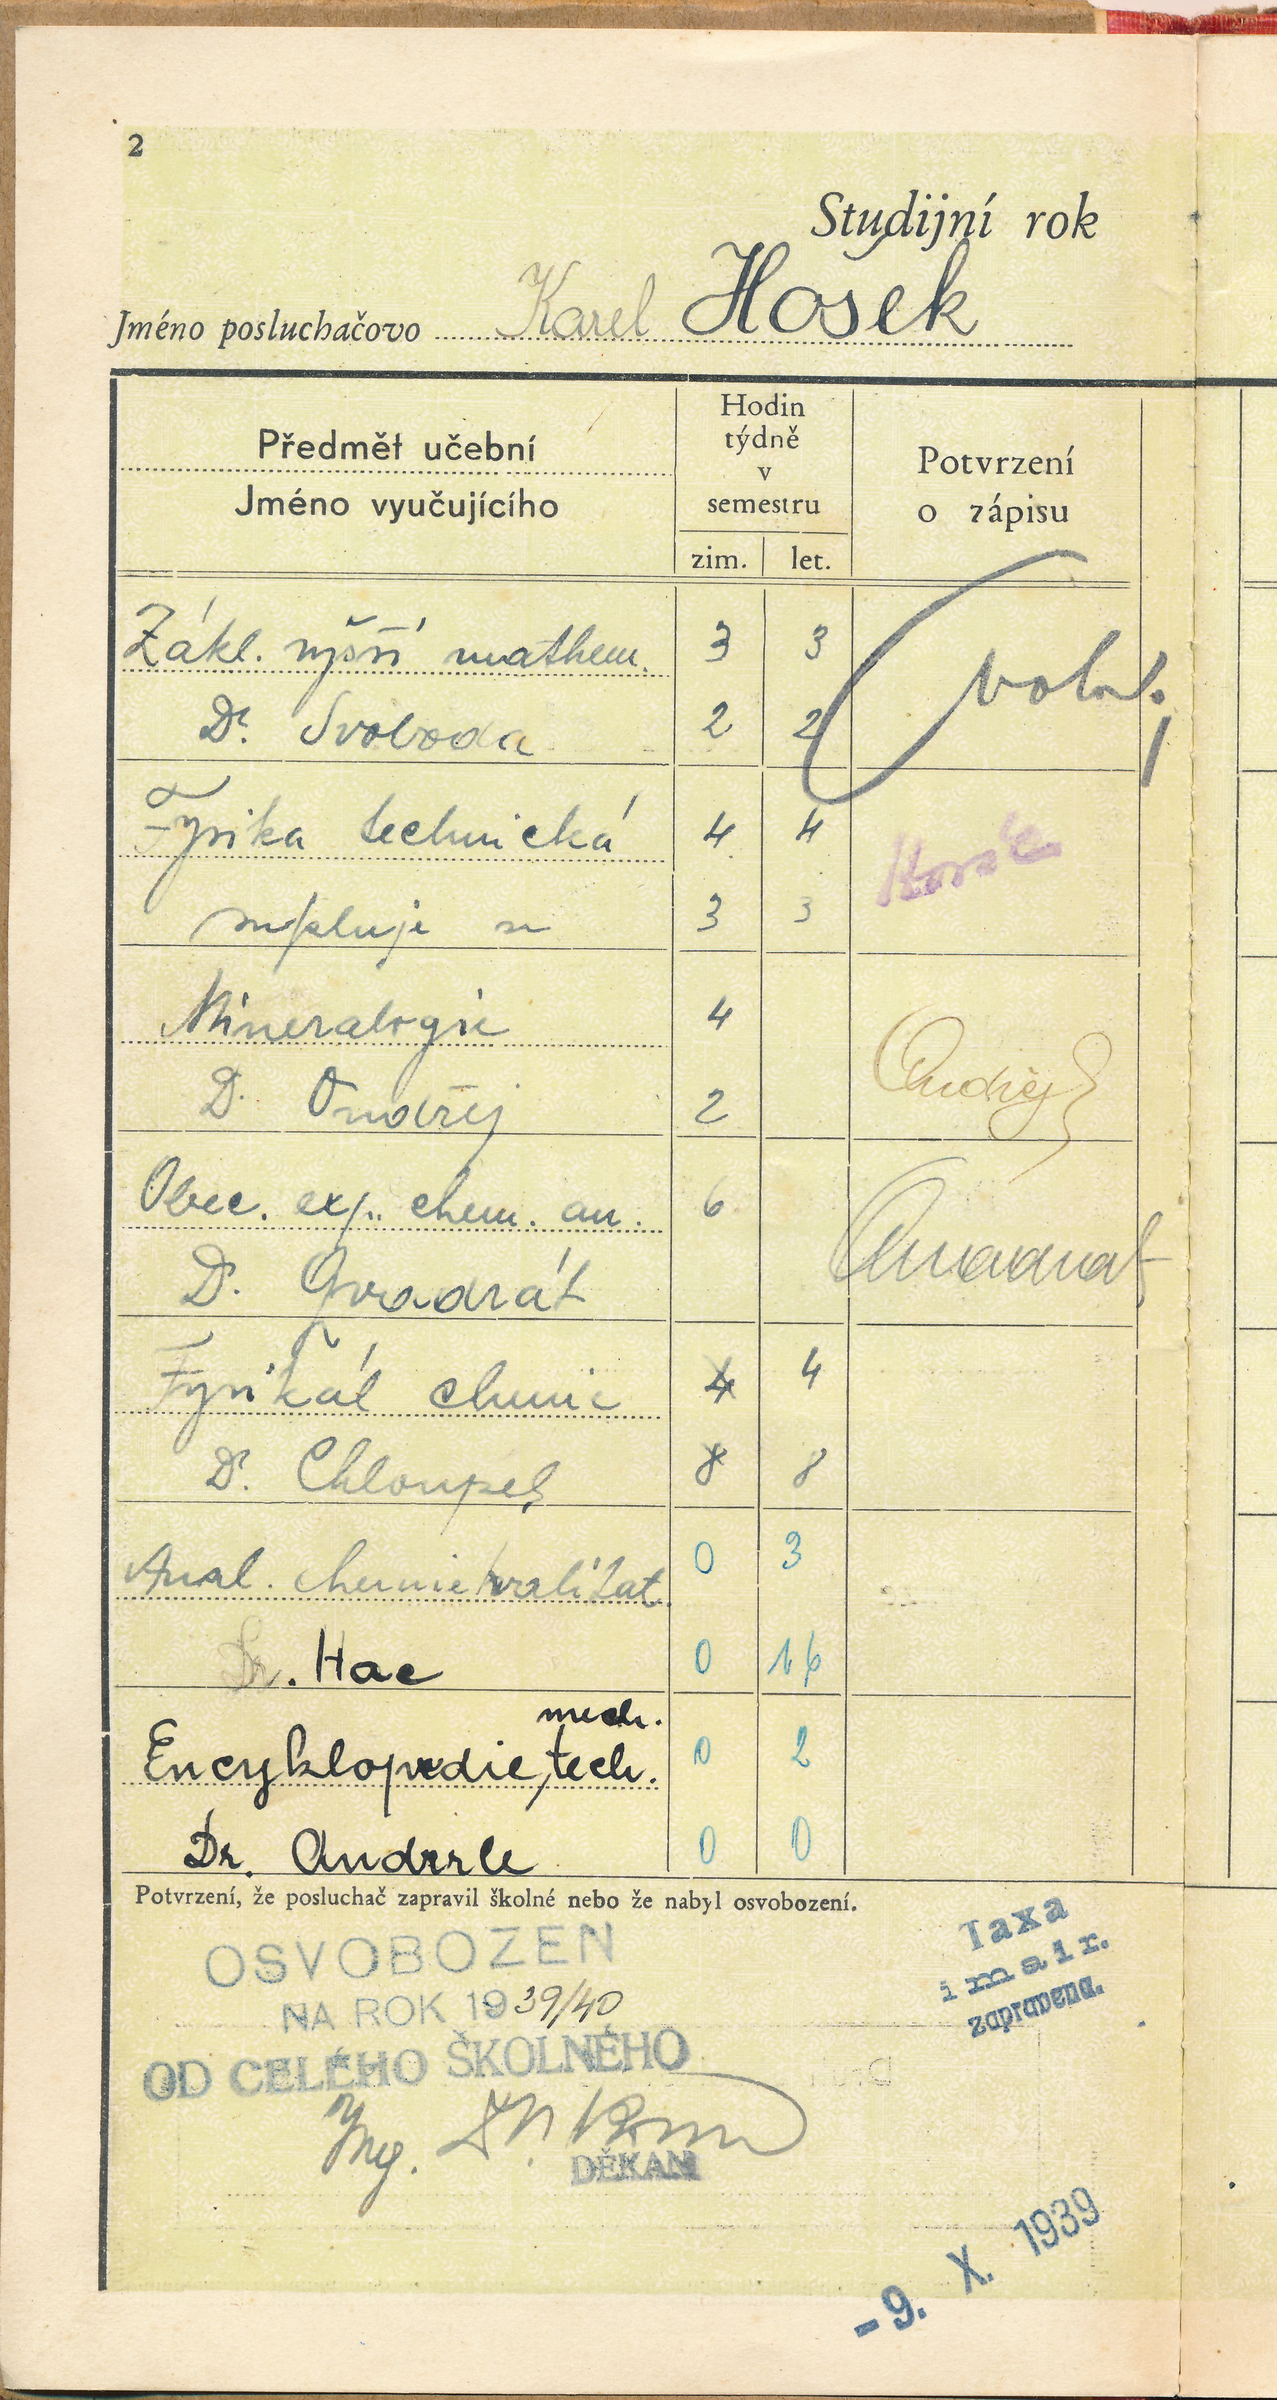 2
Studijní rok
Jméno posluchačovo Karel Hosek
Předmět učební
Jméno vyučujícího
Hodin
týdně
v
semestru
zim. let.
Potvrzení
o zápisu
Zákl. vyšší mathem. 3 3
Dr. Svoboda 2 2
Fysika technická 4 4
supluje se 3 3
Mineralogie 4
D. Ondřej 2
Ondřej
Obec. exp. chem. an. 6
D. Qvadrát
Fysikál chemie 4 4
Dr. Chloupek 8 8
Anal. chemie kvalitat. 0 3
Dr. Hac 0 16
mech.
Encyklopedie, tech. 0 2
Dr. Anderle 0 0
Potvrzení, že posluchač zapravil školné nebo že nabyl osvobození.
OSVOBOZEN
NA ROK 1939/40
OD CELÉHO ŠKOLNÉHO
Ing.
DĚKAN
Taxa
imatr.
zapravena.
-9. X. 1939